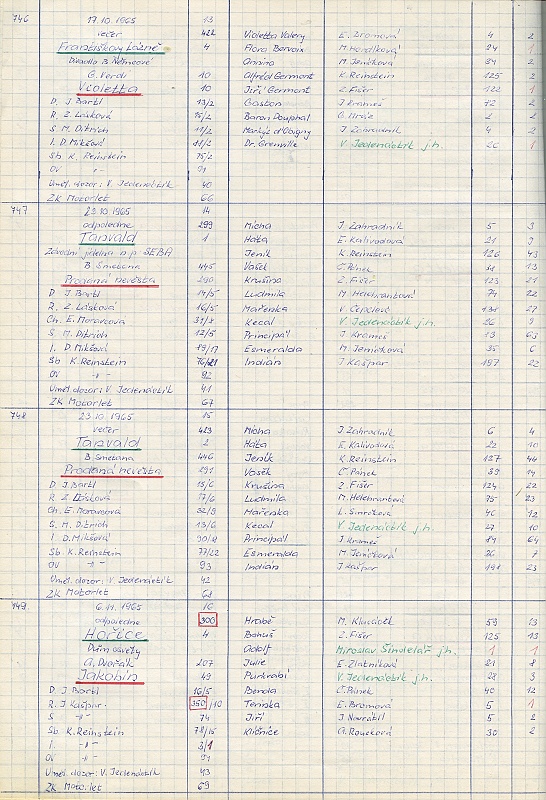 746 17.10.1965 13
večer 422 Violetta Valery E. Bromová 4 2
Františkovy Lázně 4 Flora Bervoix M. Horálková 24 1
Divadlo B. Němcové Annina M. Jeníčková 34 2
G. Verdi 10 Alfréd Germont K. Reinstein 125 2
Violetta 10 Jiří Germont Z. Fišer 122 1
D. J. Bartl 13/2 Gaston J. Krameš 72 2
R. Z. Lásková 15/2 Baron Douphal 2 2
S. M. Ditrich 11/2 Markýz d'Obigny J. Zahradník 4 2
I. D. Mikšová 11/2 Dr. Grenville V. Jedenáctík j.h. 26 1
Sb. K. Reinstein 75/2
OV -"- 91
Uměl. dozor: V. Jedenáctík 40
ZK Motorlet 66
747 23.10.1965 14
odpoledne 299 Mícha J. Zahradník 5 3
Tanvald 1 Háta E. Kalivodová 21 9
Závodní jídelna n.p. SEBA Jeník K. Reinstein 126 43
B. Smetana 445 Vašek Č. Pánek 38 13
Prodaná nevěsta 290 Krušina Z. Fišer 123 21
D. J. Bartl 14/5 Ludmila M. Helebrantová 74 22
R. Z. Lásková 16/5 Mařenka V. Čepcová 131 27
Ch. E. Moravcová 31/8 Kecal V. Jedenáctík j.h. 26 9
S. M. Ditrich 12/5 Principál J. Krameš 13 63
I. D. Mikšová 89/17 Esmeralda M. Jeníčková 35 6
Sb. K. Reinstein 76/21 Indián J. Kašpar 197 22
OV -"- 92
Uměl. dozor: V. Jedenáctík 41
ZK Motorlet 67
748 23.10.1965 15
večer 423 Mícha J. Zahradník 6 4
Tanvald 2 Háta E. Kalivodová 22 10
B. Smetana 446 Jeník K. Reinstein 127 44
Prodaná nevěsta 291 Vašek Č. Pánek 39 14
D. J. Bartl 15/6 Krušina Z. Fišer 124 22
R. Z. Lásková 17/6 Ludmila M. Helebrantová 75 23
Ch. E. Moravcová 32/9 Mařenka L. Šimečková 46 12
S. M. Ditrich 13/6 Kecal V. Jedenáctík j.h. 27 10
I. D. Mikšová 90/18 Principál J. Krameš 14 64
Sb. K. Reinstein 77/22 Esmeralda M. Jeníčková 36 7
OV -"- 93 Indián J. Kašpar 198 23
Uměl. dozor: V. Jedenáctík 42
ZK Motorlet 68
749 6.11.1965 16
odpoledne 300 Hrabě M. Klacáček 59 13
Hořice 4 Bohuš Z. Fišer 125 13
Dům osvěty Adolf Miroslav Šindelář j.h. 1 1
A. Dvořák 207 Julie E. Zlatníková 21 8
Jakobín 49 Purkrabí V. Jedenáctík j.h. 28 3
D. J. Bartl 16/5 Benda Č. Pánek 40 12
R. J. Kašpar 350/10 Terinka E. Bromová 5 1
S. -"- 74 Jiří J. Navrátil 5 2
Sb. K. Reinstein 78/15 Klíčnice A. Roučková 30 2
I. -"- 3/1
OV -"- 91
Uměl. dozor: V. Jedenáctík 43
ZK Motorlet 69